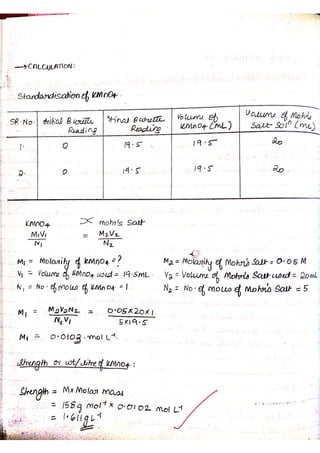 → CALCULATION:
Standardisation of KMnO4
SR.No. Initial Burette Reading Final Burette Reading Volume of KMnO4 (mL) Volume of Mohr's Salt Soln (mL)
1. 0 19.5 19.5 20
2. 0 19.5 19.5 20.
KMnO4 mohr's Salt
M1V1/N1 = M2V2/N2
M1 = Molarity of KMnO4 = ? M2 = Molarity of Mohr's Salt = 0.05 M
V1 = Volume of KMnO4 used = 19.5mL V2 = Volume of Mohr's Salt used = 20mL
N1 = No. of moles of KMnO4 = 1 N2 = No. of moles of Mohr's Salt = 5
M1 = M2V2N2/N2V1 = 0.05x20x1/5x19.5
M1 = 0.0103 mol L-1
Strength or wt/litre of KMnO4:
Strength = M x Molar mass
= 158g mol-1 x 0.0102 mol L-1
= 1.611g L-1